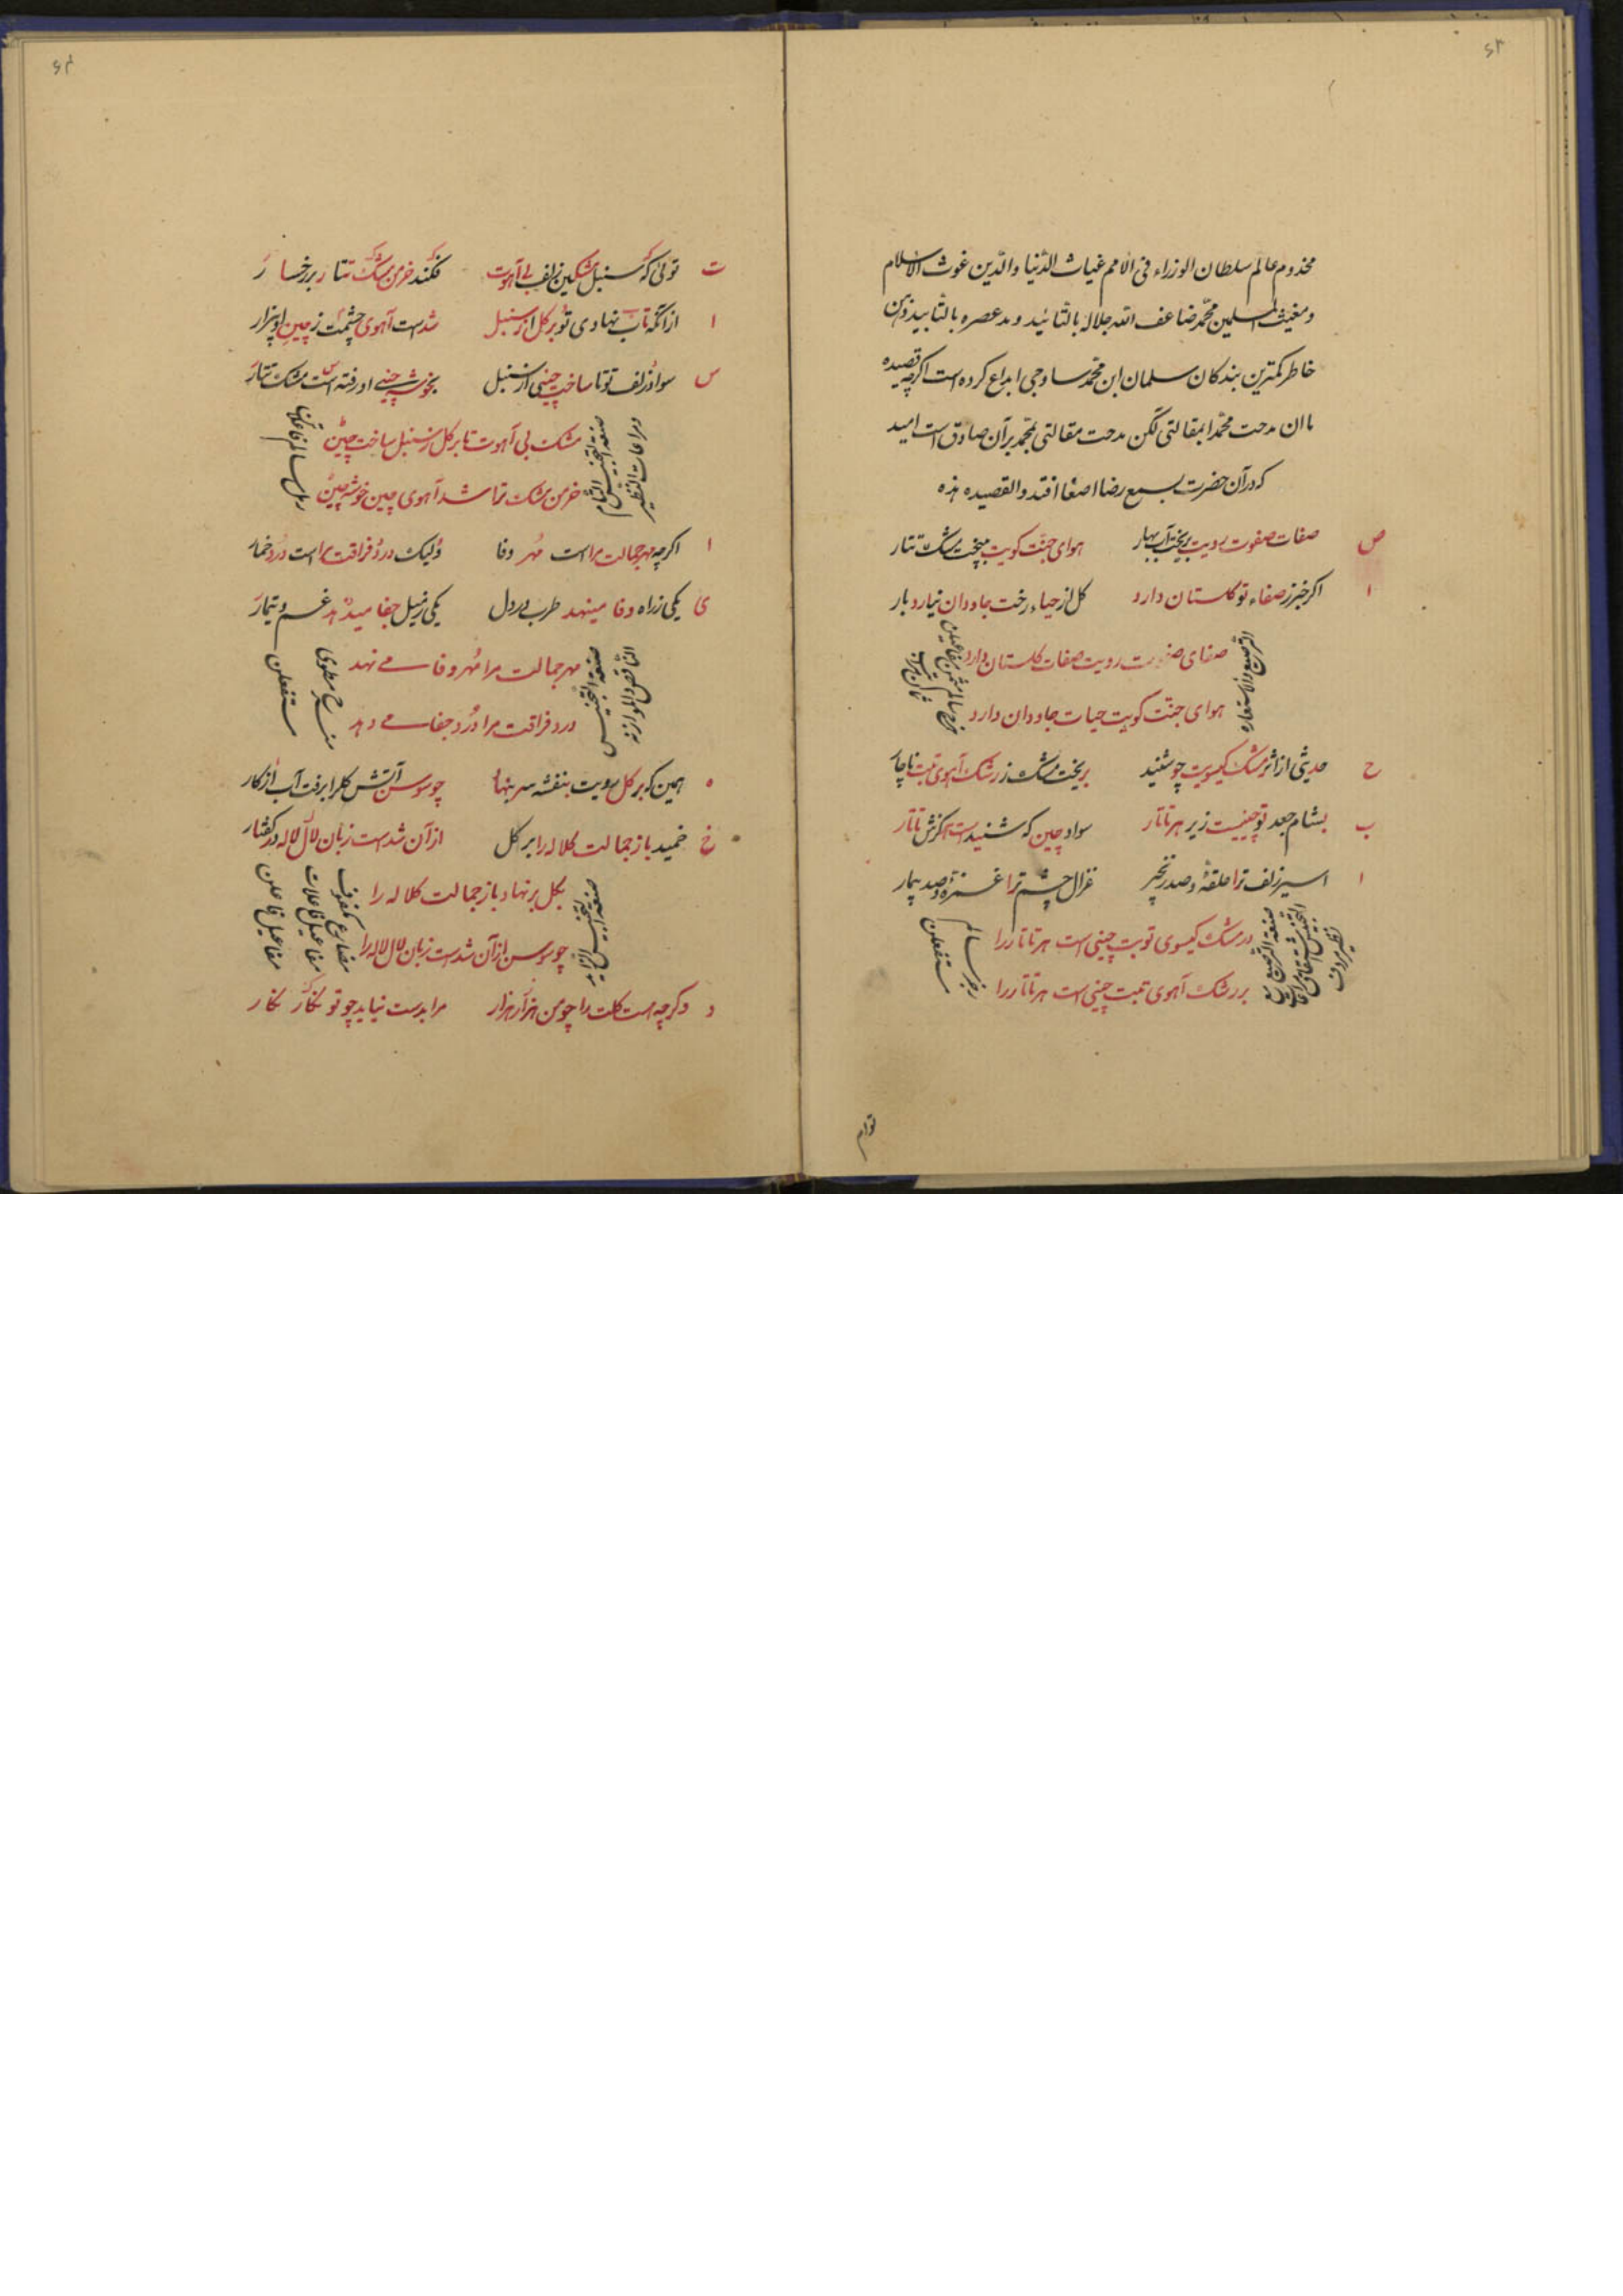 ۶۳
مخدوم عالم سلطان الوزراء فی الامم غیاث الدنیا والدین غوث الاسلام
ومغیث المسلمین محمد ضاعف الله جلاله بالتائید ومد عصره بالتابید ذهن
خاطر کمترین بندکان سلمان ابن محمد ساوجی ابداع کرده است اکرچه قصیده
ما ان مدحت محمدا بمقالتی لکن مدحت مقالتی بمحمد برآن صادق است امید
که درآن حضرت بسمع رضا اصغا افتد والقصیده هذه
ص صفات صفوت رویت بریخت آب بهار هوای جنت کویت ببیخت مشک تتار
ا اکر خبر ز صفاء تو کلستان دارد کل از حیاء رخت جاودان نیارد بار
صفای صفوت رویت صفات کلستان دارد
هوای جنت کویت حیات جاودان دارد
الترصیع والاستعاره
ح حدیثی از اثر مشک کیسویت چو شنید بریخت مشک ز رشک آهوی تبت ناچار
ب بشام جعد تو چینیست زیر هر تاتار سواد چین که شنیدست اکزش تاتار
ا اسیر زلف ترا حلقهٔ وصد نخجیر غزال چشم ترا غمزه وصد بیمار
در مشک کیسوی تو بت چینی است هر تاتار را
بر رشک آهوی تبت چینی است هر تاتار را
رجز سالم
مستفعلن
توام
۶۴
ت توئی که سنبل مشکین زلف بی آهوت فکند خرمن مشک تتار بر رخسار
ا از آنکه تاب نهادی تو بر کل از سنبل شدست آهوی چشمت ز چین او بیزار
س سواد زلف تو تا ساخت چینی از سنبل بخوشه چینی او رفته است مشک تتار
مشک بی آهوت تا بر کل ز سنبل ساخت چین
خرمن مشک ترا شد آهوی چین خوشه چین
صنعة التجنیس التام
ومراعات النظیر
رمل سالم
ا اکرچه مهر جمالت مراست مهر وفا ولیک درد فراقت مراست درد خمار
ی یکی ز راه وفا مینهد طرب در دل یکی ز نیل جفا میدهد غم وتیمار
مهر جمالت مرا مهر وفا می نهد
درد فراقت مرا درد جفا می دهد
صنعة التجنیس
الناقص والموازنه
منسرح مطوی
مستفعلن
ه همین که بر کل رویت بنفشه سر بنهاد چو سوسن آتش کل را برفت آب از کار
خ خمید باز جمالت کلاله را بر کل از آن شدست زبان لال لاله در کفتار
بکل بر نهاد باز جمالت کلاله را
چو سوسن از آن شدست زبان لال لاله را
مضارع مکفوف
مفاعیل فاعلات
مفاعیل فاعلن
د وکرچه هست کلت را چو من هزار هزار مرا بدست نیاید چو تو نکار نکار